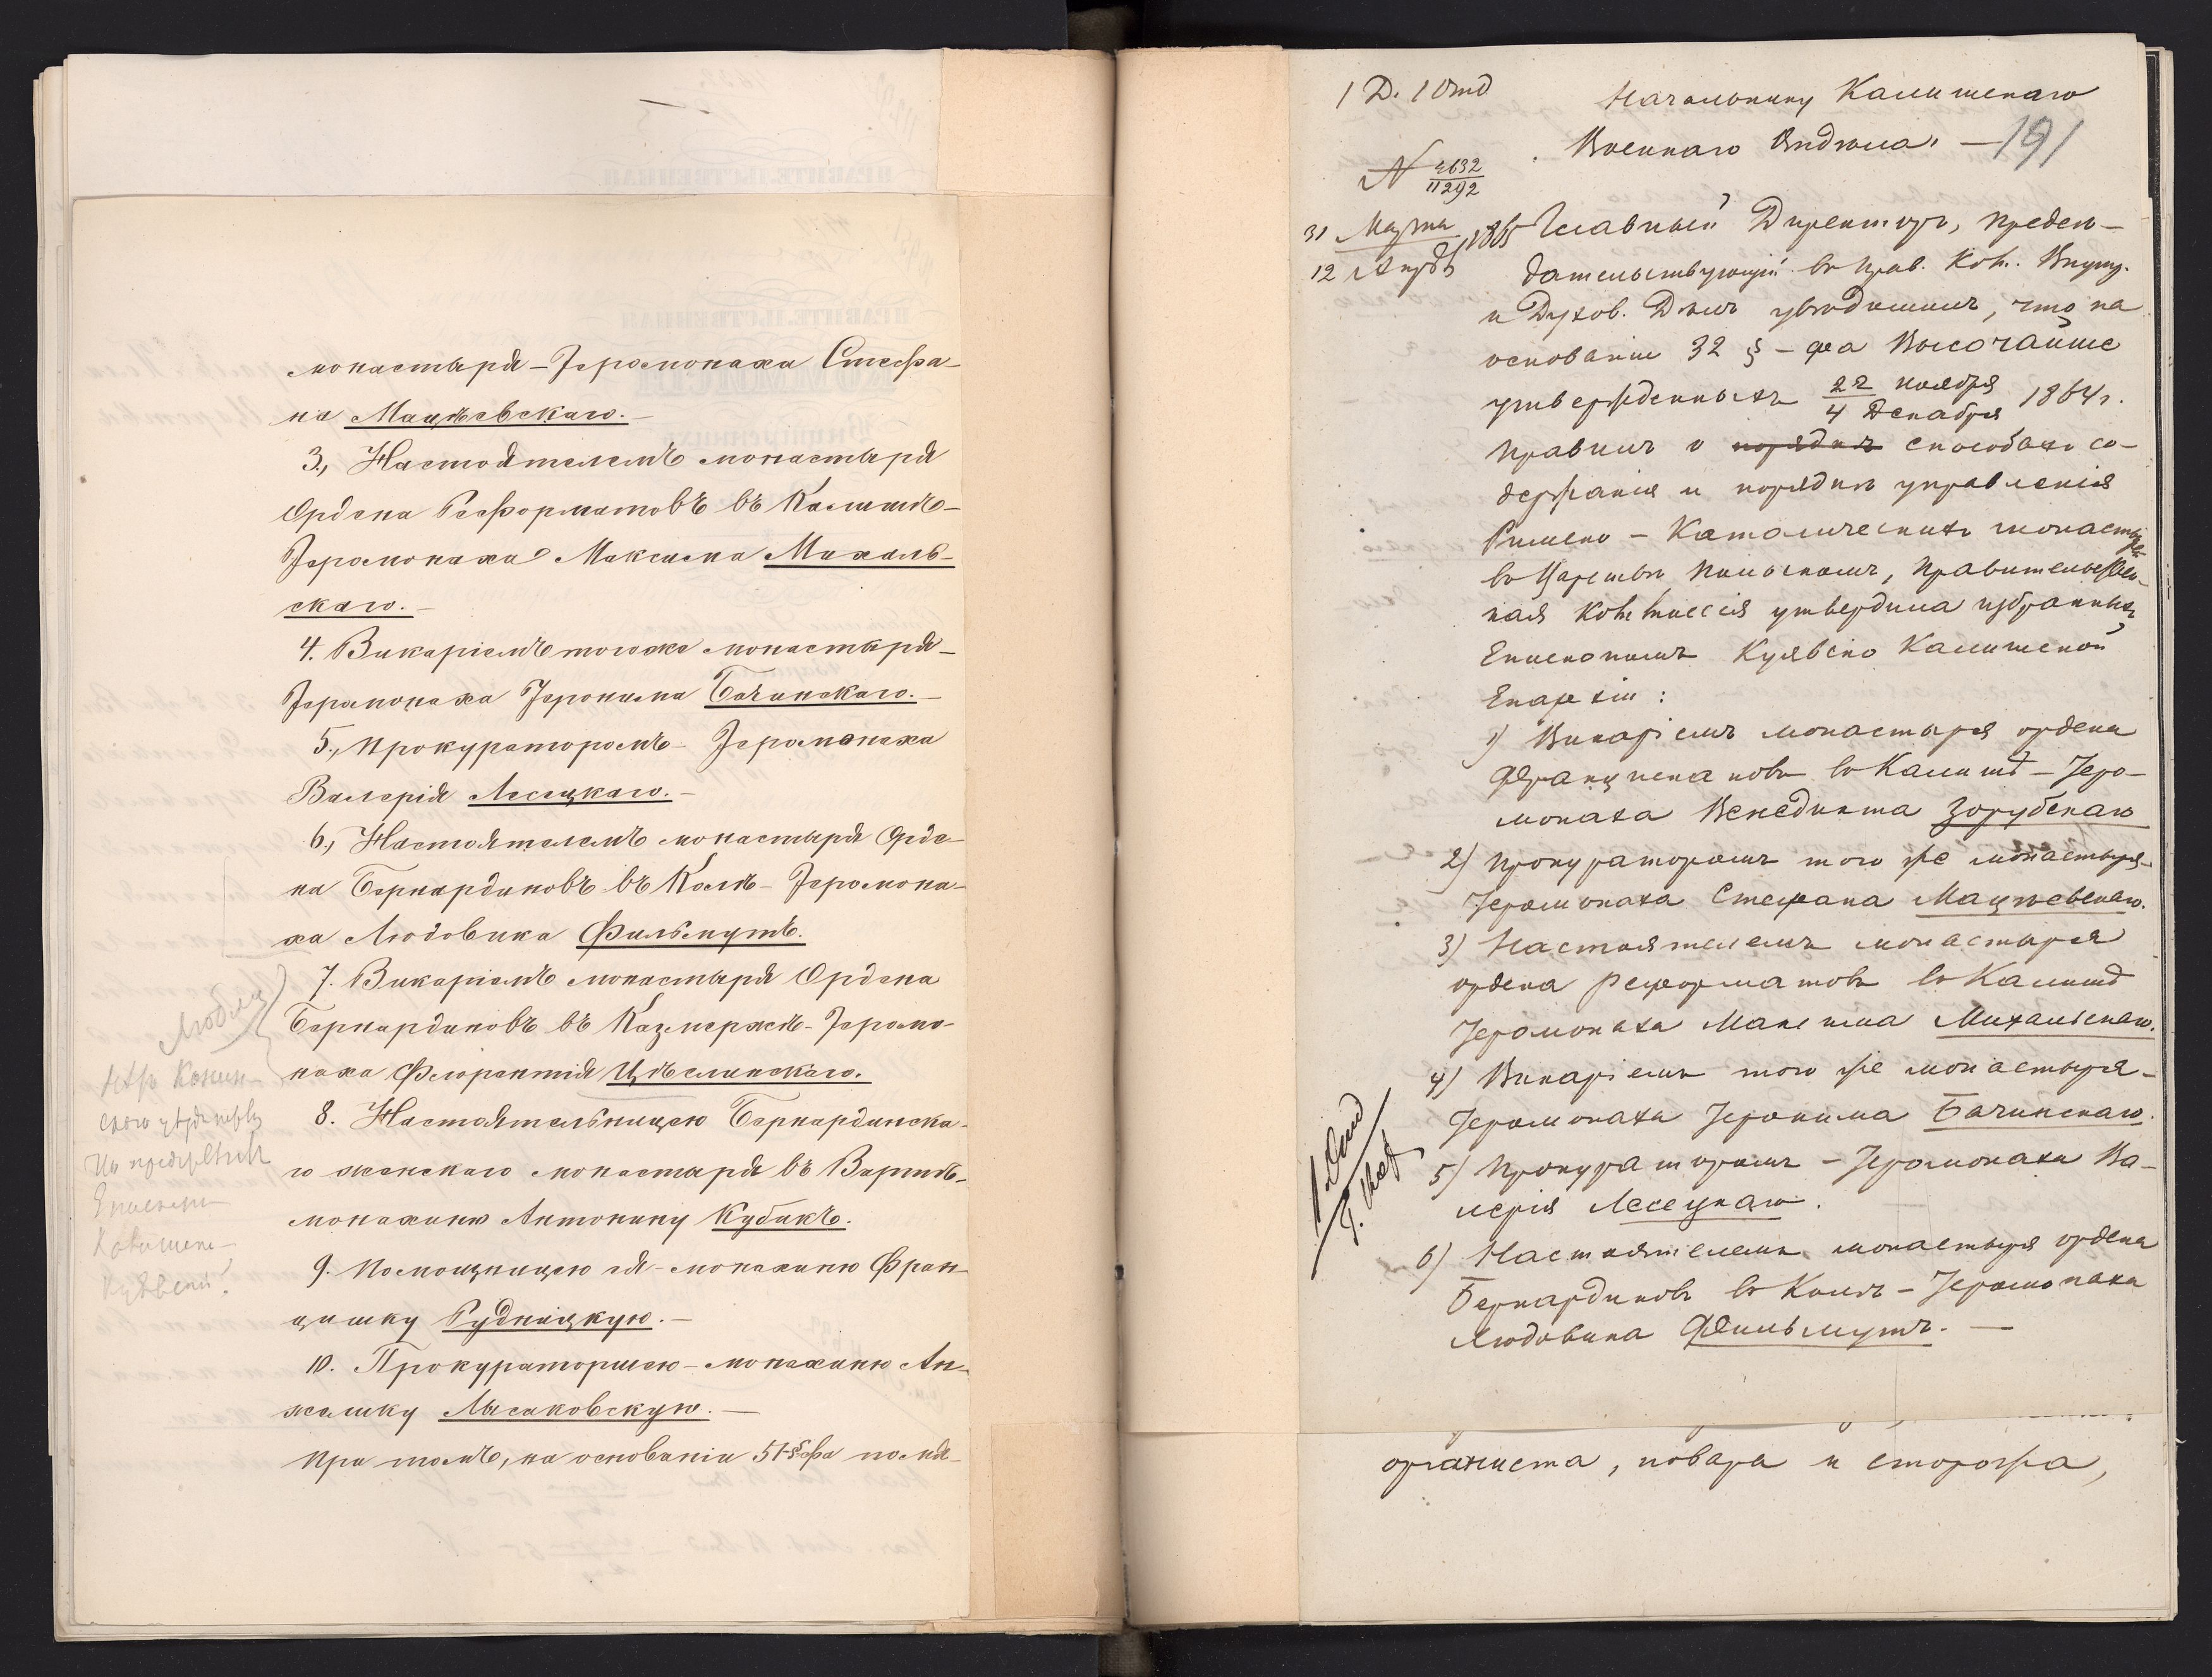 монастыря – Іеромонаха Стефа-
на Мацѣевскаго. –
3., Настоятелемъ монастыря
Ордена Реформатовъ въ Калишѣ –
Іеромонаха Максима Михаль-
скаго. –
4. Викаріемъ тогоже монастыря –
Іеромонаха Іеронима Бачинскаго. –
5., Прокураторомъ – Іеромонаха
Валерія Лесецкаго. –
6., Настоятелемъ монастыря Орде-
на Бернардиновъ въ Колѣ – Іеромона-
ха Людовика Фильмутъ.
7. Викаріемъ монастыря Ордена
Бернардиновъ въ Казмержѣ – Іеромо-
наха Флорентія Цѣслинскаго.
8. Настоятельницею Бернардинска-
го женскаго монастыря въ Вартѣ –
монахиню Антонину Кубикъ.
9. Помощницею ея – монахиню Фран-
цишку Рудницкую. –
10. Прокураторшею – монахиню Ан-
желику Лысаковскую. –
При томъ, на основаніи 51 §-фа помя-
1 Д. 1 Отд
Начальнику Калишскаго
Военнаго Отдѣла. –
191
N 4632
11292
31 Марта
12 Апрѣ 1865
Главный Директоръ, предсѣ-
дательствующій въ Прав. Ком. Внутр.
и Духов. Дѣлъ увѣдомилъ, что на
основаніи 32 § – фа Высочайше
утвержденныхъ 22 Ноября
4 Декабря 1864 г.
правилъ о порядкѣ способахъ со-
держанія и порядкѣ управленія
Римско – Католическихъ монастырей
въ Царствѣ Польскомъ, Правительствен-
ная Коммиссія утвердила избранныхъ
Епископомъ Куявско Калишской
Епархіи:
1) Викаріемъ монастыря ордена
Францискановъ въ Калишѣ – Іеро-
монаха Венедикта Зорубскаго
2) Прокураторомъ того же монастыря –
Іеромонаха Стефана Мацѣевскаго.
3) Настоятелемъ монастыря
ордена реформатовъ въ Калишѣ
Іеромонаха Максима Михальскаго.
4) Викаріемъ того же монастыря –
Іеромонаха Іеронима Бачинскаго.
5) Прокураторомъ – Іеромонаха Ва-
лерія Лесецкаго.
6) Настоятелемъ монастыря ордена
Бернардиновъ въ Колѣ – Іеромонаха
Людовика Фильмутъ. –
органиста, повара и сторожа,